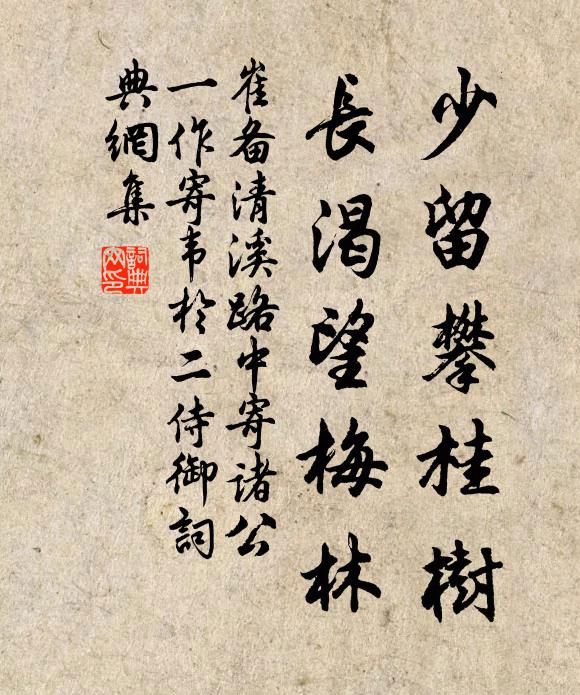 少留攀桂樹
長渴望梅林
崔备清溪路中寄诸公
一作寄韦於二侍御詞
典網集
詞典網印